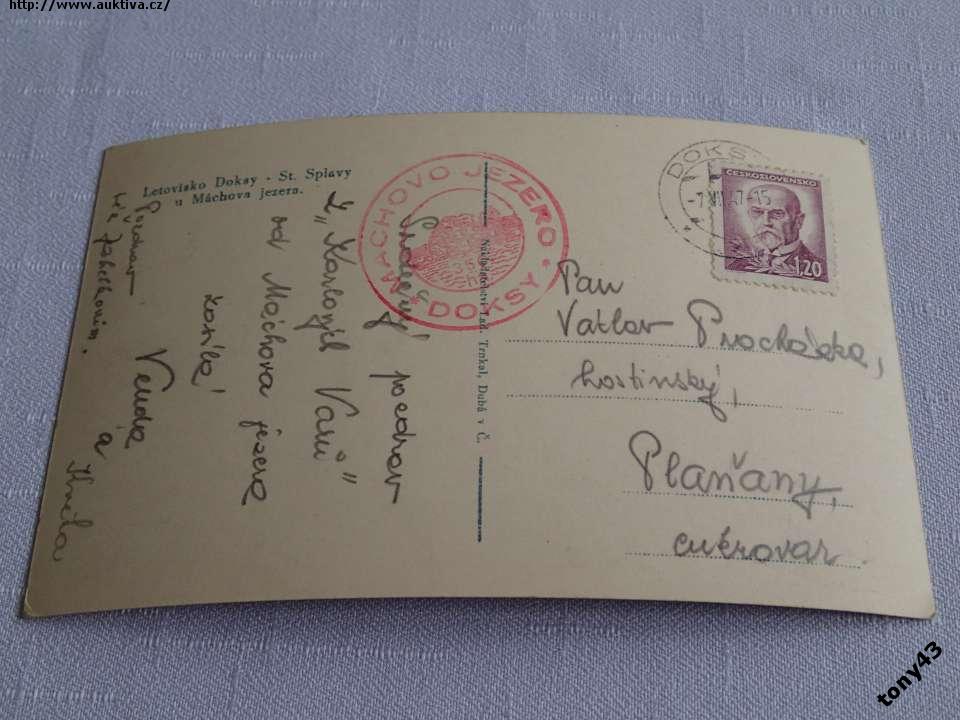 http://www.auktiva.cz/
Letovisko Doksy - St. Splavy
u Máchova jezera.
MÁCHOVO JEZERO
* DOKSY *
Srdečný pozdrav
z „Karlových Varů"
od Máchova jezera
Venda
a
Pozdrav
Nakladatelství Lad. Trnkal, Dubá v Č.
DOKSY
ČESKOSLOVENSKO
1,20
Pan
Václav Procházka,
hostinský,
Plaňany,
cukrovar
tony43